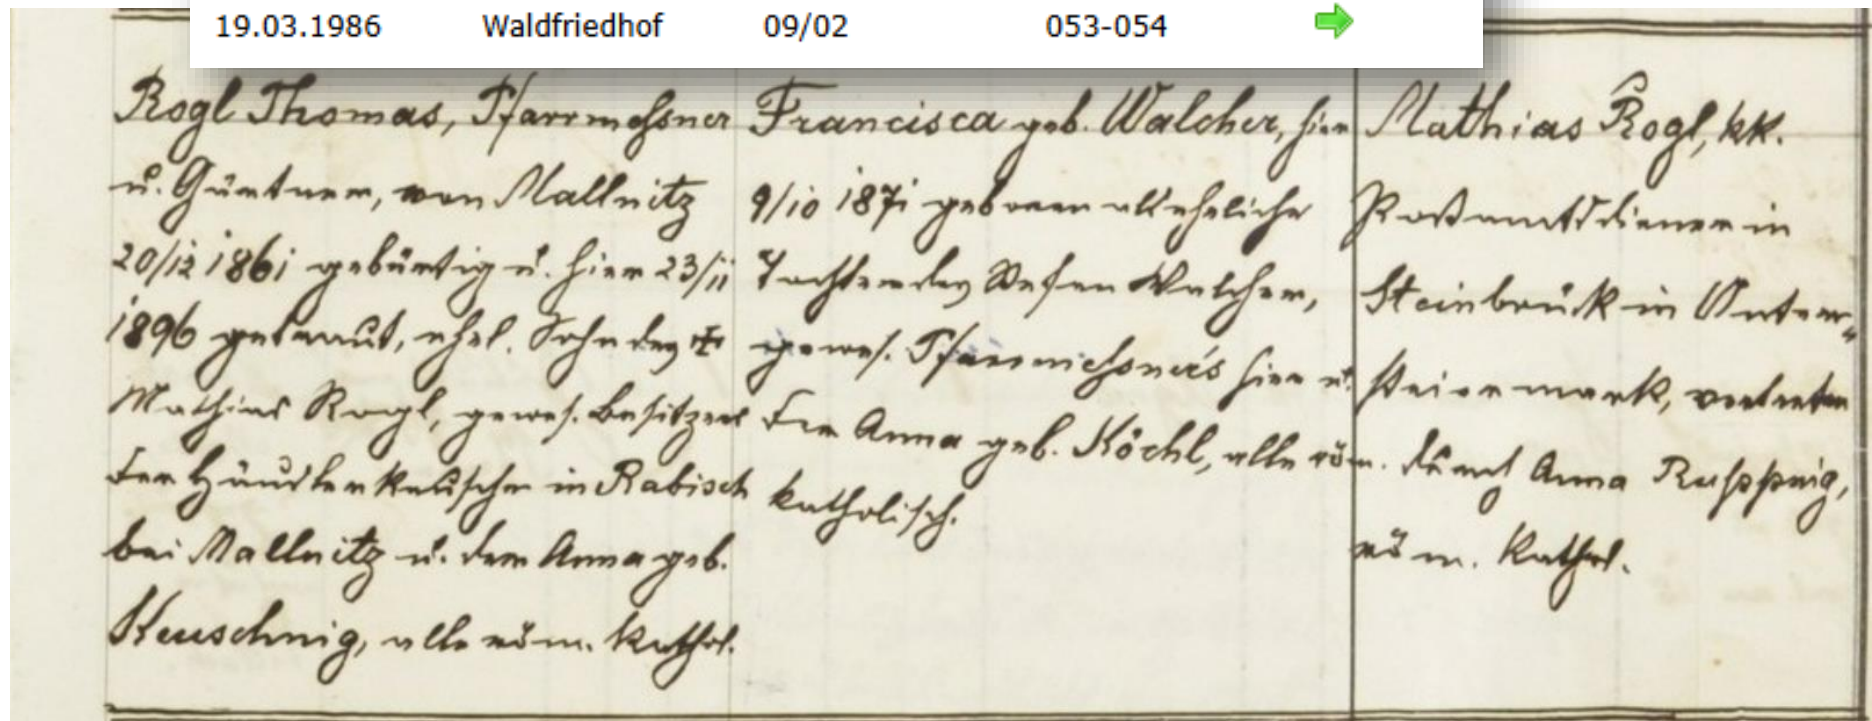 19.03.1986 Waldfriedhof 09/02 053-054
Rogl Thomas, Pfarrmeßner
u. Gärtner, von Mallnitz
20/12 1861 gebürtig u. hier 23/11
1896 getraut, ehel. Sohn des
Mathias Rogl, gewes. Besitzers
der Händlerkeusche in Rabisch
bei Mallnitz u. der Anna geb.
Keuschnig, alle röm. kathol.
Francisca geb. Walcher, hier
9/10 1871 geboren als eheliche
Tochter des Walcher,
gewes. Pfarrmeßners hier u.
der Anna geb. Köchl, alle röm.
katholisch.
Mathias Rogl, kk.
Postamtsdiener in
Steinbrück in Unter-
steiermark, vertreten
durch Anna Ruppnig,
röm. kathol.